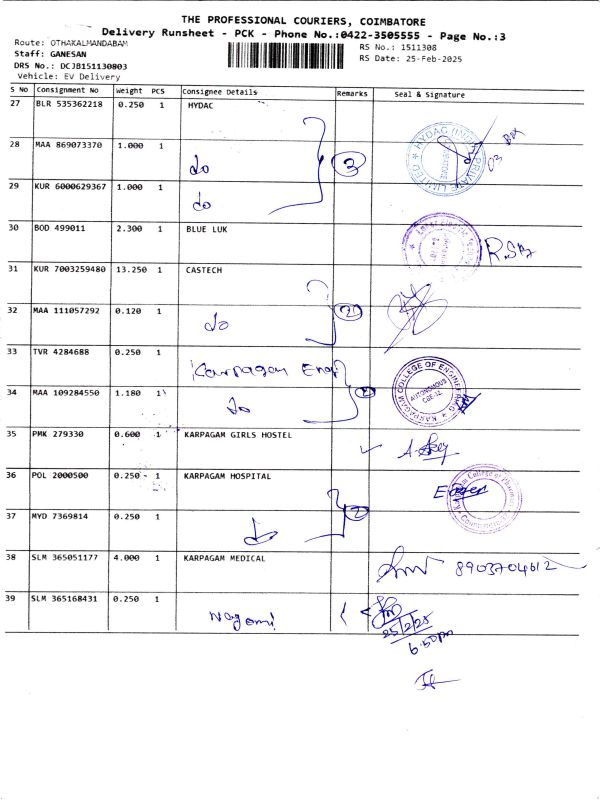 THE PROFESSIONAL COURIERS, COIMBATORE
Delivery Runsheet - PCK - Phone No.:0422-3505555 - Page No.:3
Route: OTHAKALMANDABAM
RS No.: 1511308
Staff: GANESAN
RS Date: 25-Feb-2025
DRS No.: DCJB151130803
Vehicle: EV Delivery
S No Consignment No Weight PCS Consignee Details Remarks Seal & Signature
27 BLR 535362218 0.250 1 HYDAC
28 MAA 869073370 1.000 1 do 3 HYDAC PRIVATE LIMITED 03 Box
29 KUR 6000629367 1.000 1 do
30 BOD 499011 2.300 1 BLUE LUK
31 KUR 7003259480 13.250 1 CASTECH
32 MAA 111057292 0.120 1 do 2
33 TVR 4284688 0.250 1 Karpagam Eng
34 MAA 109284550 1.180 1 do 2 KARPAGAM COLLEGE OF ENGINEERING AUTONOMOUS CBE-32
35 PMK 279330 0.600 1 KARPAGAM GIRLS HOSTEL
36 POL 2000500 0.250 1 KARPAGAM HOSPITAL
37 MYD 7369814 0.250 1 do 2 College of Pharmacy
38 SLM 365051177 4.000 1 KARPAGAM MEDICAL 8903704612
39 SLM 365168431 0.250 1
25/2/25
6.50pm